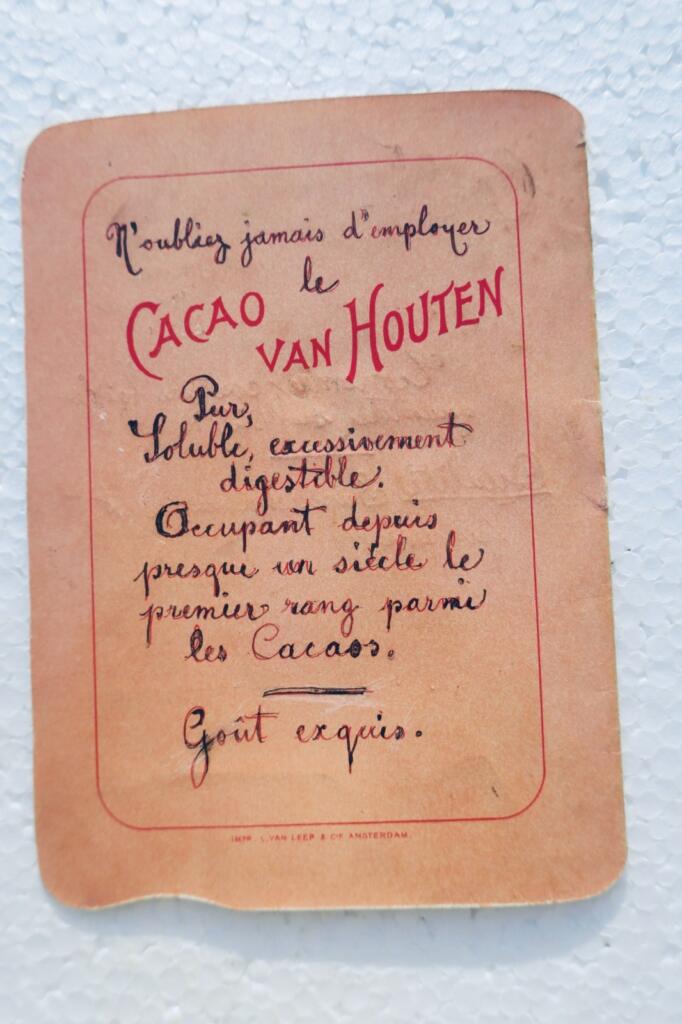 N'oubliez jamais d'employer
le
CACAO
VAN HOUTEN
Pur,
Soluble, excessivement
digestible.
Occupant depuis
presque un siècle le
premier rang parmi
les Cacaos.
Goût exquis.
IMPR. L. VAN LEER & CIE AMSTERDAM.